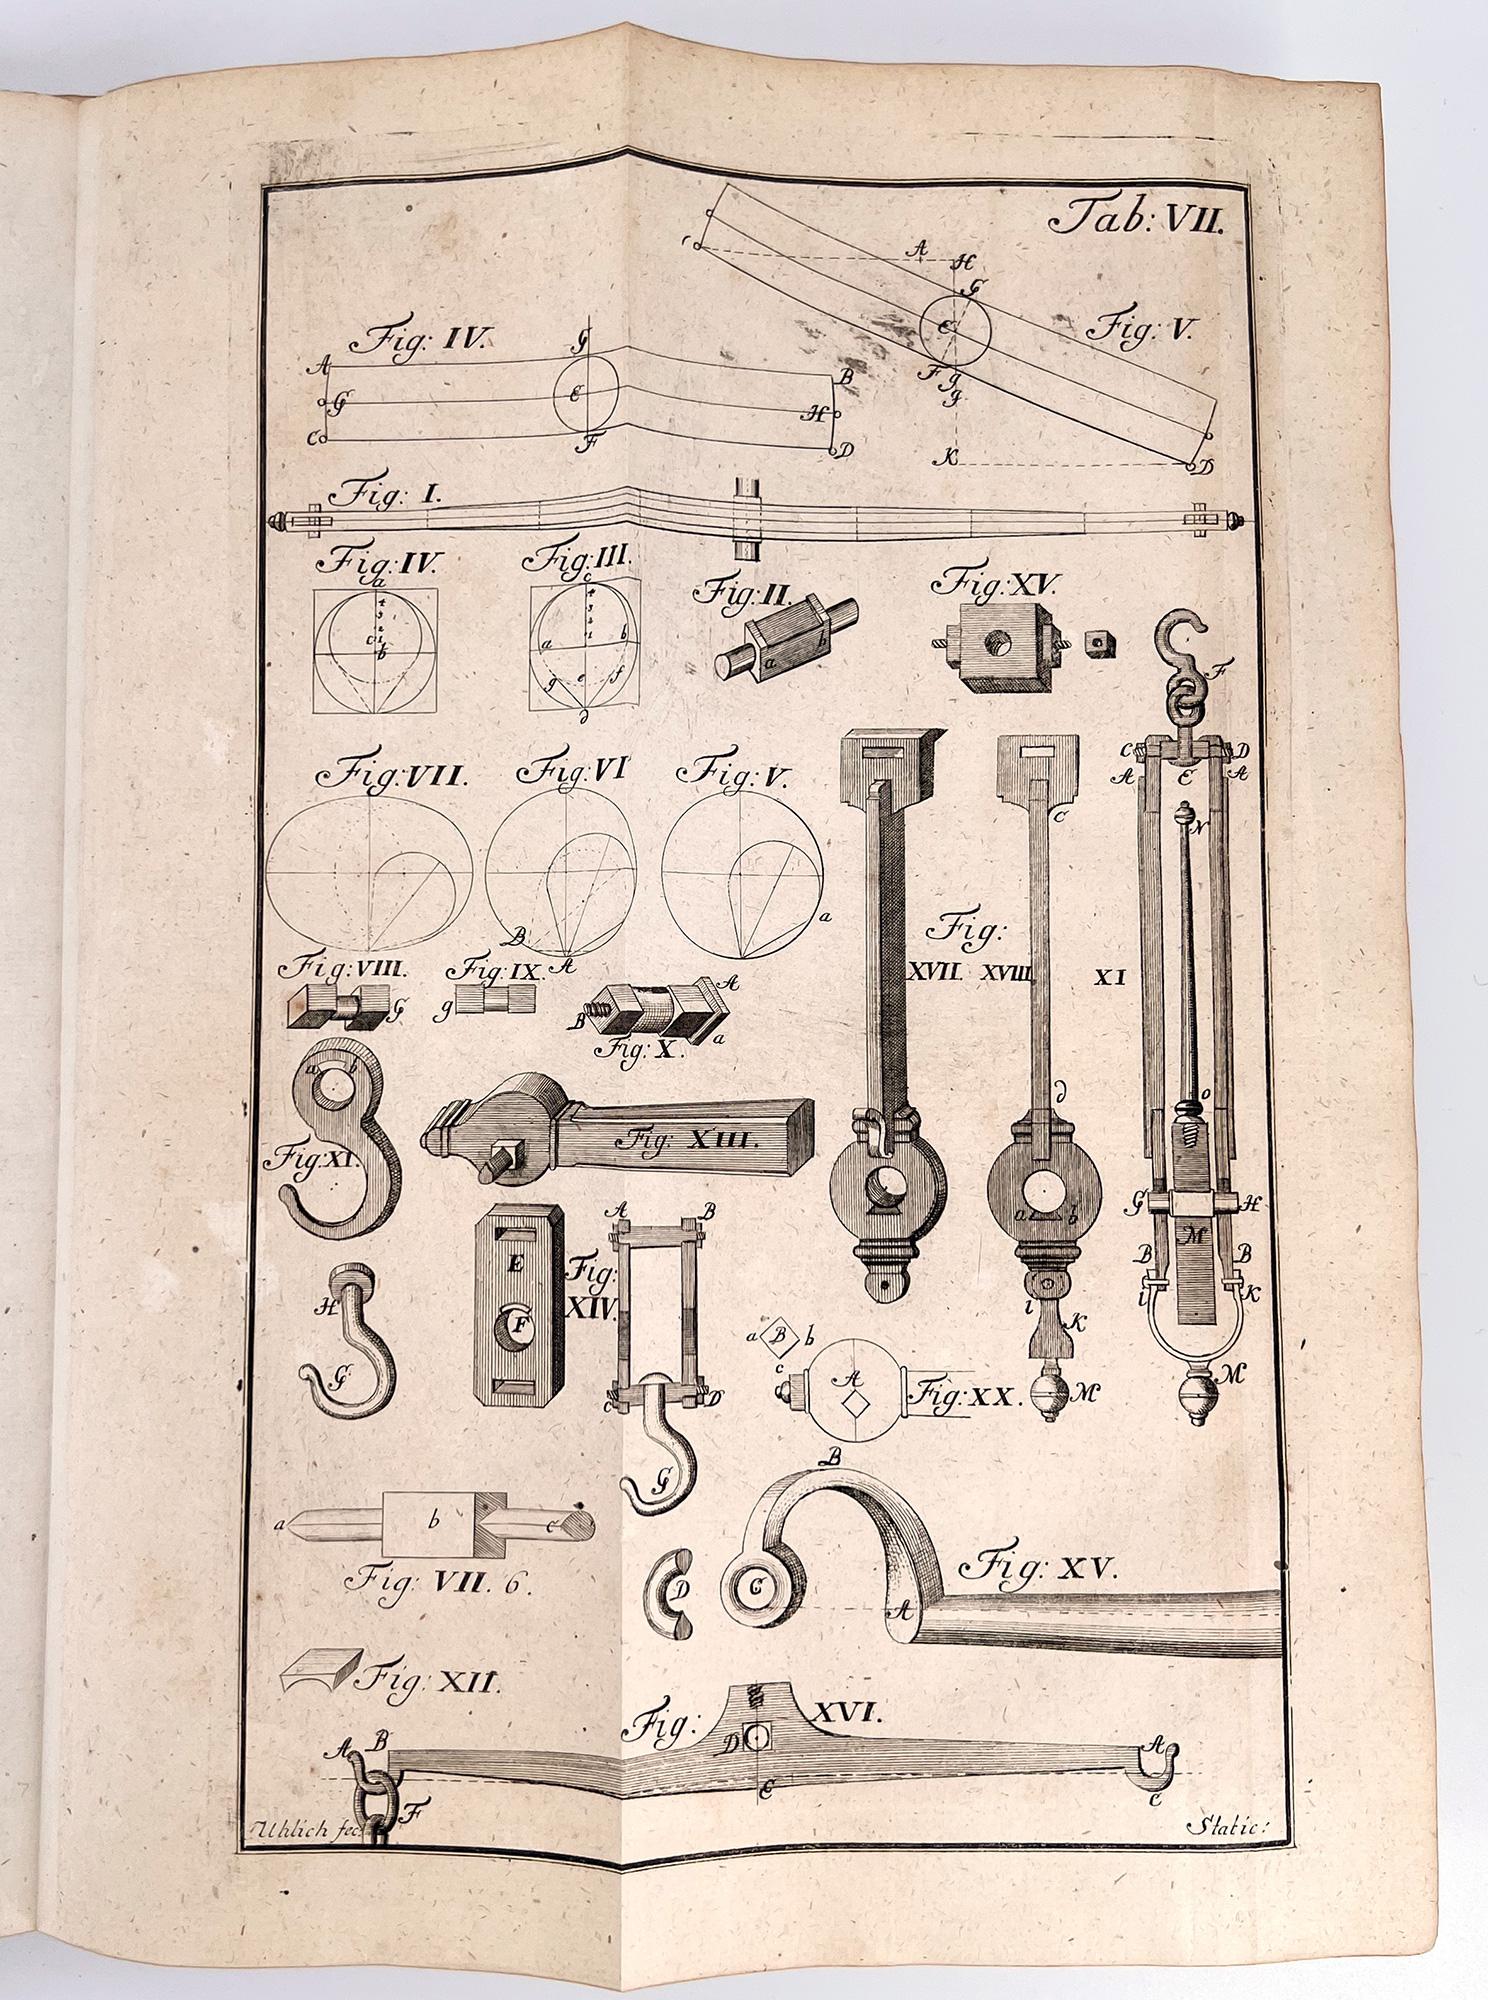 Tab: VII.
Fig: IV.
Fig: V.
A
G
C
G
E
F
B
H
D
C
A
H
G
F
g
g
K
D
Fig: I.
Fig: IV.
a
4
3
2
1
c
b
Fig: III.
c
4
3
2
1
a
b
g
e
f
d
Fig: II.
a
b
Fig: XV.
F
C
D
A
E
A
N
Fig: VII.
Fig: VI
B
A
Fig: V.
a
C
Fig:
XVII. XVIII XI
Fig: VIII.
G
Fig: IX.
g
A
B
a
Fig: X.
a b
Fig: XI.
Fig: XIII.
d
o
a b
G
H
M
B
B
i
K
M
H
G
E
F
Fig:
XIV.
A B
C D
G
i
K
M
a B b
c
A
Fig: XX.
a
b
c
Fig: VII. 6.
D
B
C
A
Fig: XV.
Fig: XII.
Fig: XVI.
A B
D
E
A
C
F
Uhlich fec:
Static: